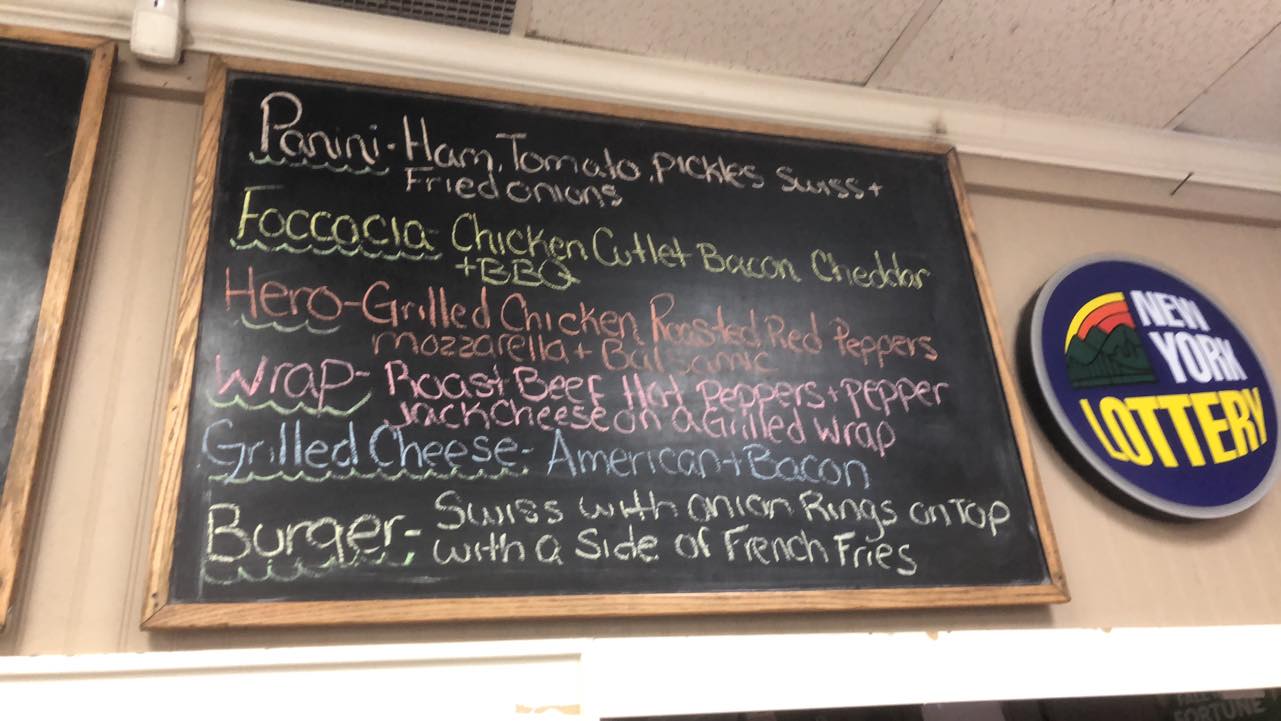 Panini- Ham, Tomato, Pickles Swiss +
Fried onions
Foccacia- Chicken Cutlet Bacon Cheddar
+ BBQ
Hero- Grilled Chicken Roasted Red Peppers
mozzarella + Balsamic
Wrap- Roast Beef Hot Peppers + Pepper
Jack Cheese on a Grilled Wrap
Grilled Cheese- American + Bacon
Burger- Swiss with onion Rings on Top
with a Side of French Fries
NEW
YORK
LOTTERY
FORTUNE